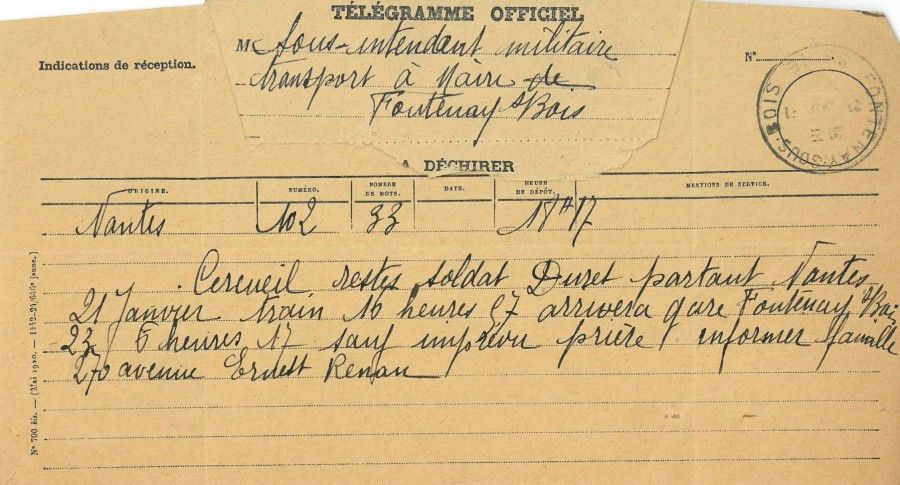 TÉLÉGRAMME OFFICIEL
Indications de réception.
M Sous-intendant militaire
N°
transport à Maire de
Fontenay s/Bois
FONTENAY-SOUS-BOIS
A DÉCHIRER
ORIGINE. NUMÉRO. NOMBRE DE MOTS. DATE. HEURE DE DÉPÔT. MENTIONS DE SERVICE.
Nantes 102 33 18H17
Cerceuil restes soldat Duret partant Nantes
21 Janvier train 16 heures 57 arrivera gare Fontenay s/Bois
23 5 heures 17 sauf imprévu prière informer famille
270 avenue Ernest Renan
N° 700 bis. — (Mai 1920.